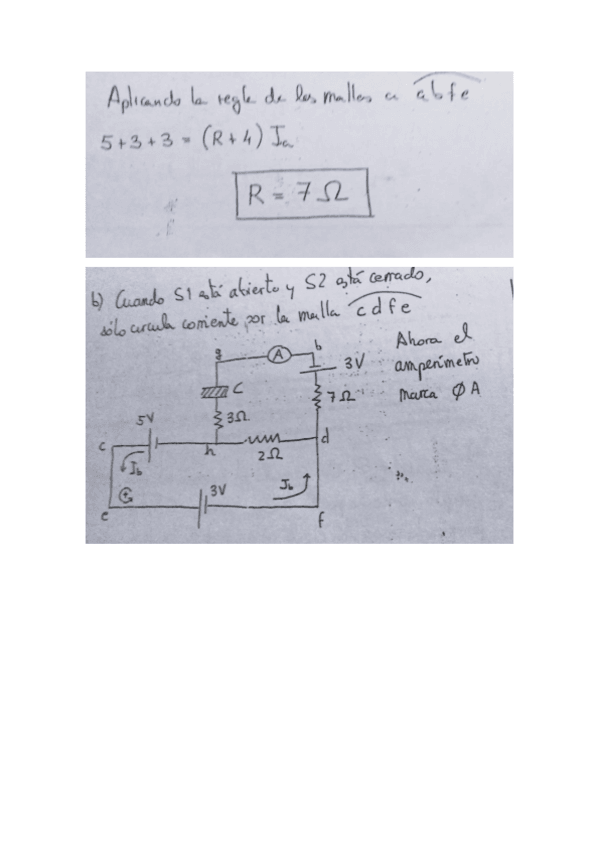 Aplicando la regla de las mallas a abfe
5+3+3 = (R+4) Ia
R = 7 Ω
b) Cuando S1 está abierto y S2 está cerrado,
sólo circula corriente por la malla cdfe
Ahora el
amperímetro
marca Ø A
g
A
b
3V
C
7Ω
3Ω
5V
c
h
2Ω
d
Ib
3V
Ib
e
f